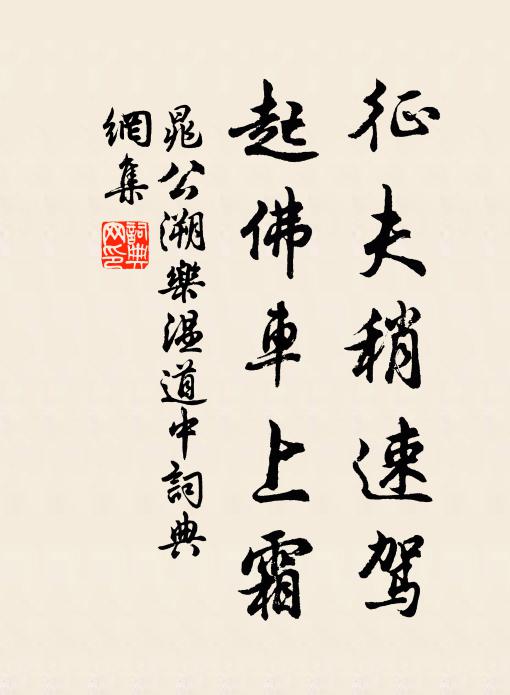 征夫稍速駕
起佛車上霜
晁公溯樂温道中詞典
網集
詞典网印